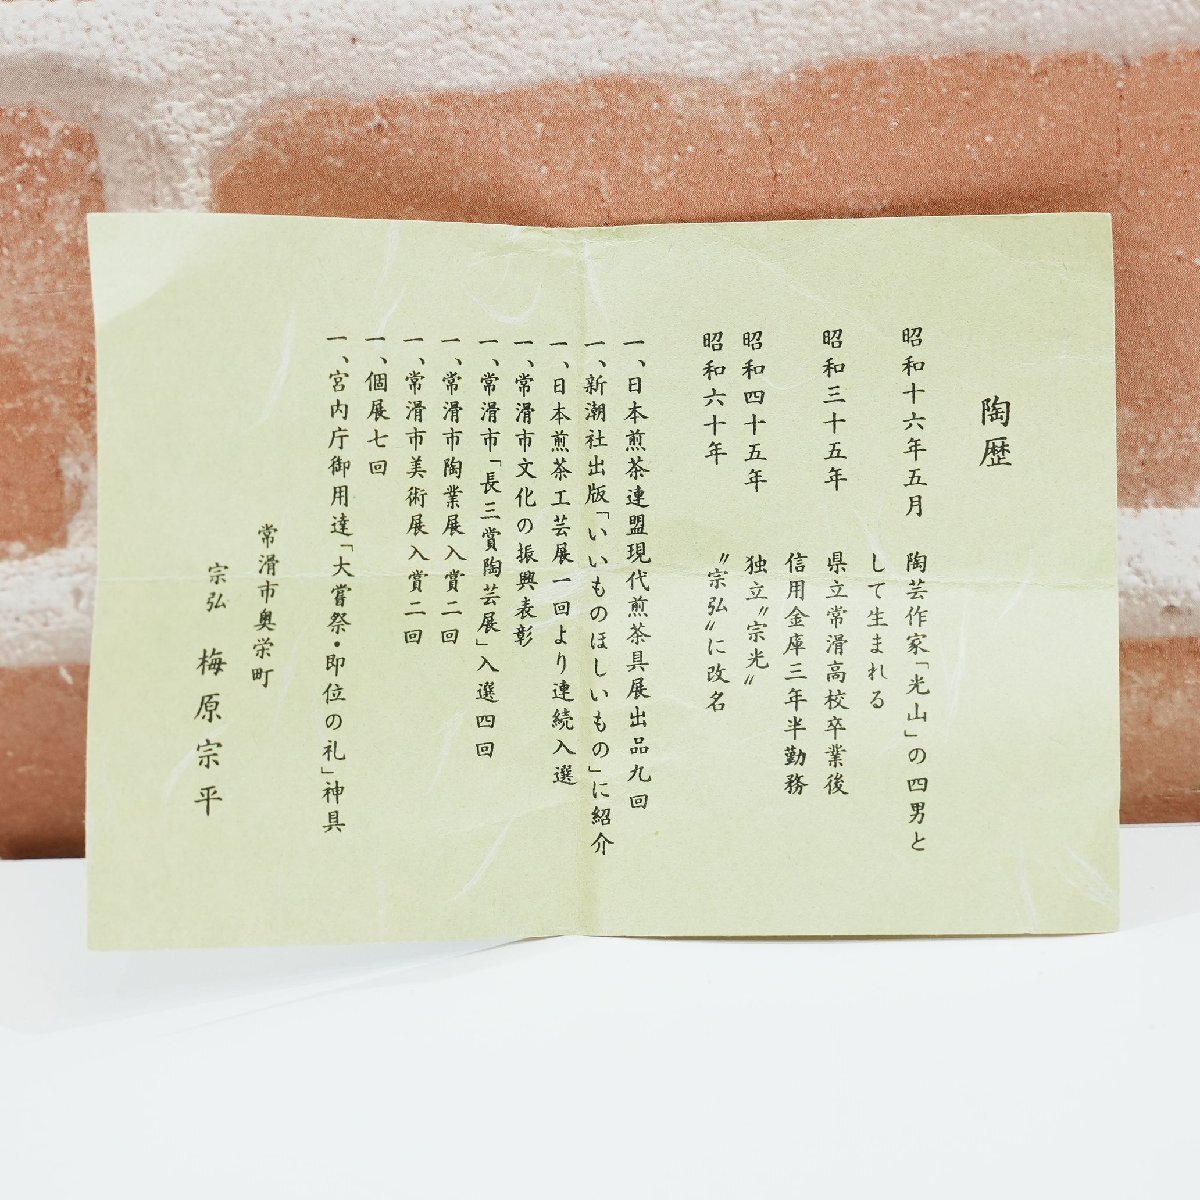 陶歴
昭和十六年五月　陶芸作家「光山」の四男と
して生まれる
昭和三十五年　県立常滑高校卒業後
信用金庫三年半勤務
昭和四十五年　独立〝宗光〟
昭和六十年　〝宗弘〟に改名
一、日本煎茶連盟現代煎茶具展出品九回
一、新潮社出版「いいものほしいもの」に紹介
一、日本煎茶工芸展一回より連続入選
一、常滑市文化の振興表彰
一、常滑市「長三賞陶芸展」入選四回
一、常滑市陶業展入賞二回
一、常滑市美術展入賞二回
一、個展七回
一、宮内庁御用達「大嘗祭・即位の礼」神具
常滑市奥栄町
宗弘　梅原宗平